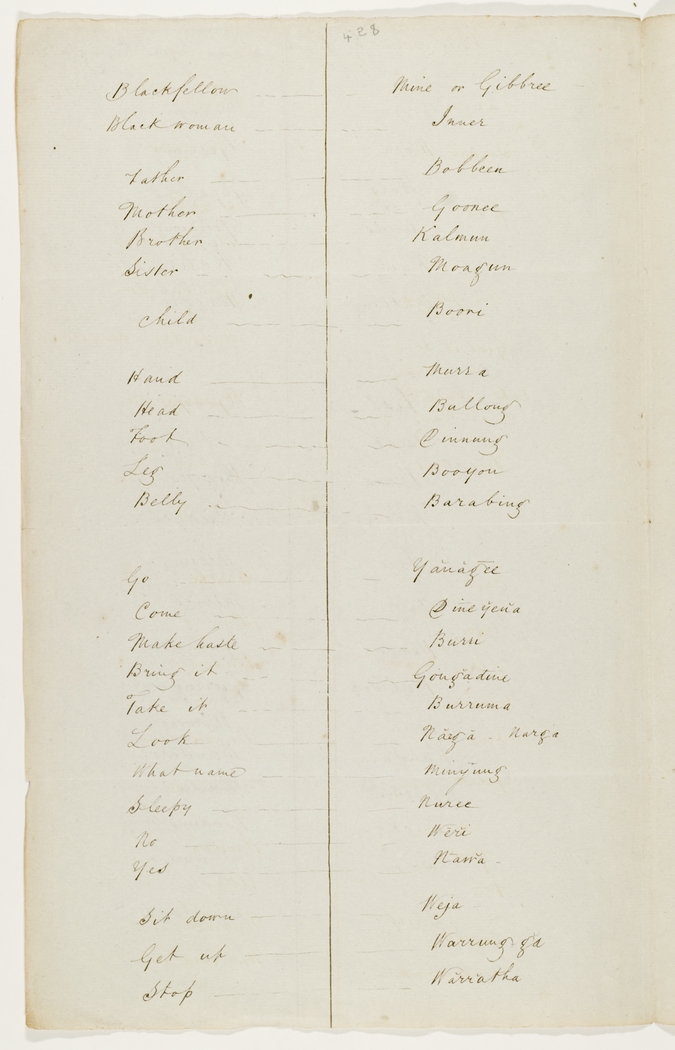 428
Blackfellow Mine or Gibbree
Black woman Inner
Father Bobbeen
Mother Goonee
Brother Kalmun
Sister Moagun
Child Boori
Hand Murra
Head Bullong
Foot Dinnung
Leg Booyou
Belly Barabing
Go Yanagee
Come Dineyena
Make haste Burri
Bring it Gongadine
Take it Burruma
Look Naega - Narga
What name Minyung
Sleepy Nuree
No Weri
Yes Nawa
Sit down Weja
Get up Warrungga
Stop Warratha